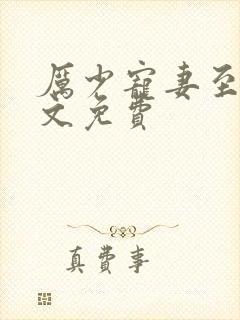 厲少寵妻至
文免費
真費事